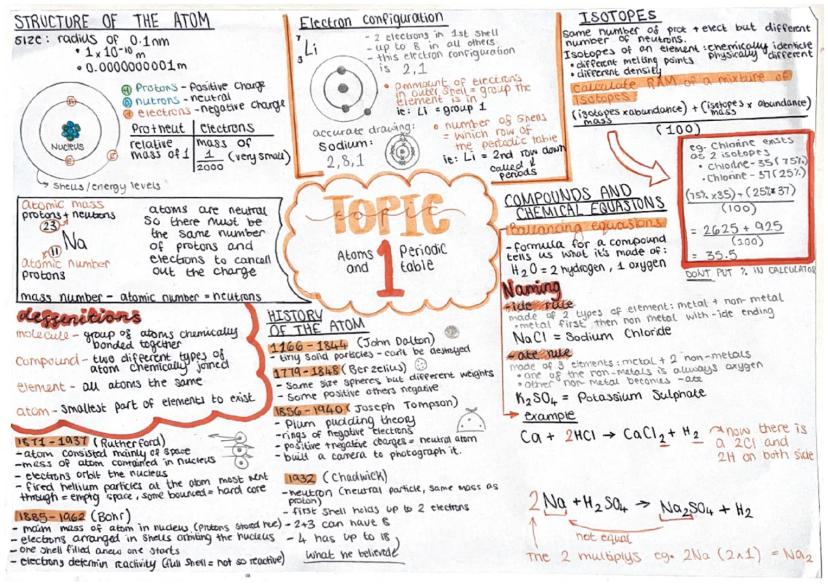 STRUCTURE OF THE ATOM
size: radius of 0.1nm
• 1 x 10⁻¹⁰ m
• 0.0000000001m
Protons - Positive charge
nutrons - neutral
electrons - negative charge
Nucleus
Prot + neut | electrons
relative mass of 1 | mass of 1/2000 (very small)
shells/energy levels
Atomic mass
protons + neutrons
23
Na
11
atomic number
protons
atoms are neutral
So there must be
the same number
of protons and
electrons to cancel
out the charge
mass number - atomic number = neutrons
deffenitions
molecule - group of atoms chemically
bonded together
compound - two different types of
atom chemically joined
element - all atoms the same
atom - Smallest part of elements to exist
1871-1937 (Rutherford)
- atom consisted mainly of space
- mass of atom contained in nucleus
- electrons orbit the nucleus
- fired helium particles at the atom most went
through = empty space, some bounced = hard core
1885-1962 (Bohr)
- maim mass of atom in nucleus
- electrons arranged in shells orbiting the nucleus
- one shell filled anew one starts
- electrons determin reactivity (full shell = not so reactive)
Electron configuration
7
Li
3
- 2 electrons in 1st shell
- up to 8 in all others
- this electron configuration
is 2,1
• ammount of electrons
in outer shell = group the
element is in
ie: Li = group 1
accurate drawing:
Sodium:
2,8,1
• number of shells
= which row of
the periodic table
ie: Li = 2nd row down
called
periods
TOPIC
topic
1
Atoms and
Periodic table
HISTORY
OF THE ATOM
1766-1844 (John Dalton)
- tiny solid particles - can't be destroyed
1779-1848 (Berzelius)
- Same size spheres but different weights
- Some positive others negative
1856-1940 (Joseph Tompson)
- Plum pudding theory
- rings of negative electrons
- positive + negative charges = neutral atom
- built a camera to photograph it.
1932 (Chadwick)
- neutron (neutral particle, same mass as
proton)
- first shell holds up to 2 electrons
- 2+3 can have 8
- 4 has up to 18
what he believed
ISOTOPES
Some number of prot + elect but different
number of neutrons.
Isotopes of an element: chemically identicle
physically different
• different melting points
• different density
calculate RAM of a mixture of
isotopes
(isotope mass x abundance) + (isotope mass x abundance)
(100)
eg. Chlorine exists
as 2 isotopes
• Chlorine-35 (75%)
• Chlorine-37 (25%)
(75% x 35) + (25% x 37)
(100)
= 2625 + 925
(100)
= 35.5
DONT PUT % IN CALCULATOR
COMPOUNDS AND
CHEMICAL EQUASTONS
Ballancing equasions
- formula for a compound
tells us what it's made of:
H₂O = 2 hydrogen, 1 oxygen
Naming
-ide rule
made of 2 types of element: metal + non-metal
• metal first, then non metal with -ide ending
NaCl = Sodium Chloride
-ate rule
made of 3 elements: metal + 2 non-metals
• one of the non-metals is always oxygen
• other non metal becomes -ate
K₂SO₄ = Potassium Sulphate
example
Ca + 2HCl → CaCl₂ + H₂
now there is
a 2Cl and
2H on both side
2Na + H₂SO₄ → Na₂SO₄ + H₂
not equal
The 2 multiplys eg. 2Na (2x1) = Na₂